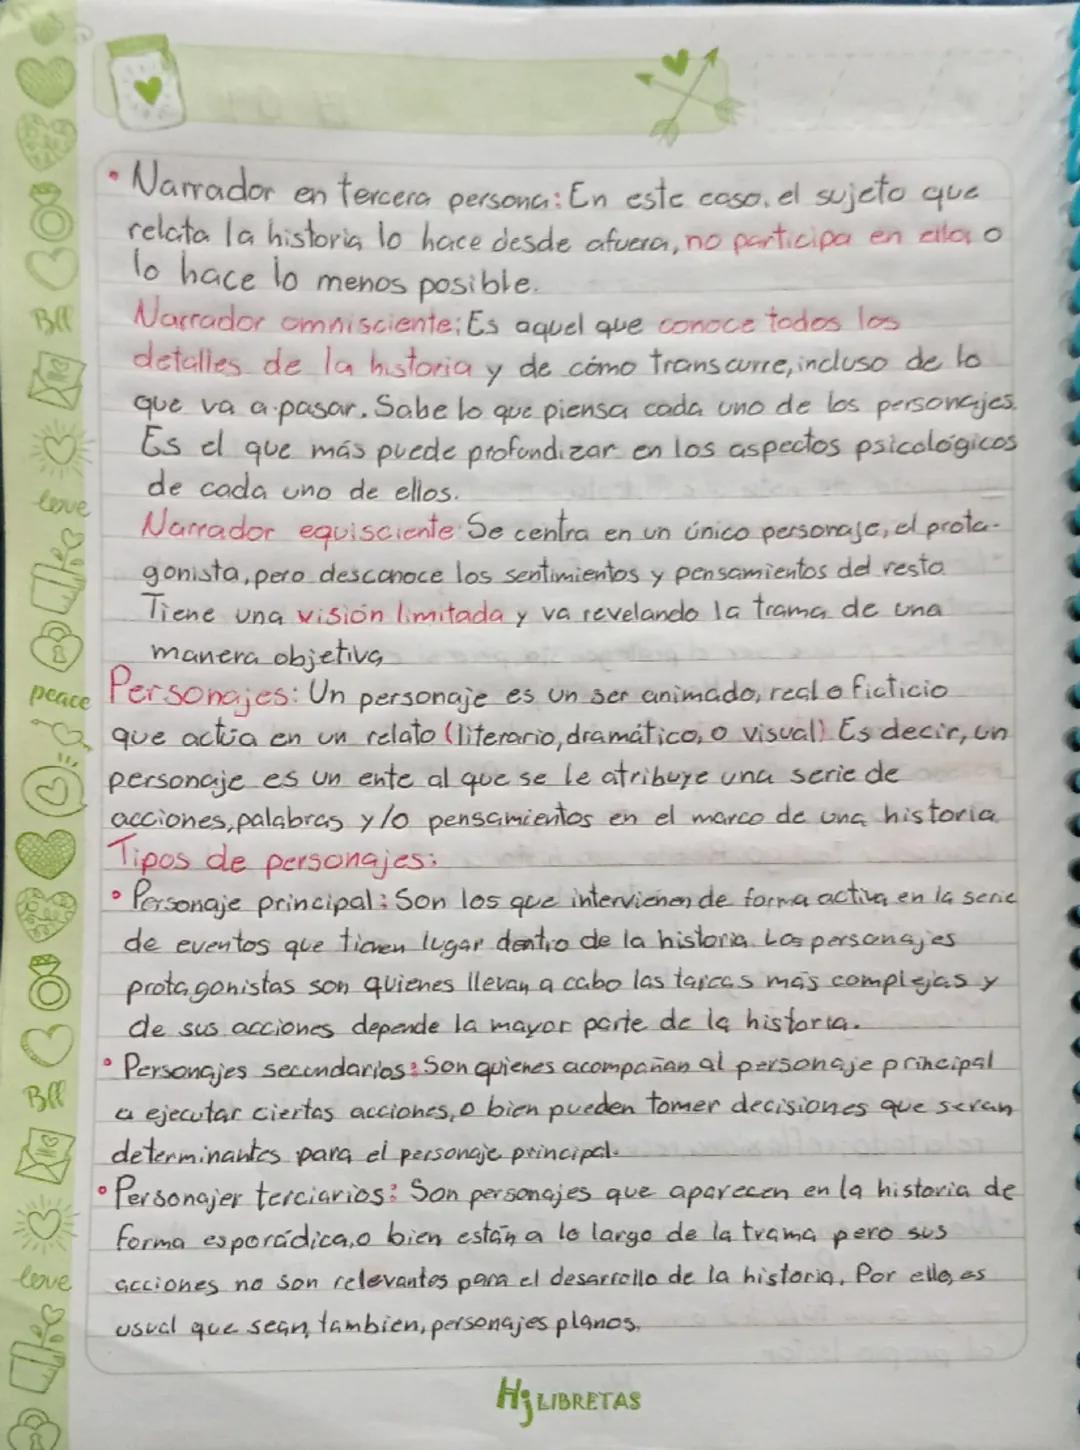 • Narrador en tercera persona: En este caso, el sujeto que
relata la historia lo hace desde afuera, no participa en ella o
lo hace lo menos posible.
Narrador omnisciente: Es aquel que conoce todos los
detalles de la historia y de cómo transcurre, incluso de lo
que va a pasar. Sabe lo que piensa cada uno de los personajes.
Es el que más puede profundizar en los aspectos psicológicos
de cada uno de ellos.
Narrador equisciente: Se centra en un único personaje, el prota-
gonista, pero desconoce los sentimientos y pensamientos del resto
Tiene una visión limitada y va revelando la trama de una
manera objetiva
Personajes: Un personaje es un ser animado, real o ficticio
que actúa en un relato (literario, dramático, o visual). Es decir, un
personaje es un ente al que se le atribuye una serie de
acciones, palabras y/o pensamientos en el marco de una historia
Tipos de personajes:
• Personaje principal: Son los que intervienen de forma activa en la serie
de eventos que tienen lugar dentro de la historia. Los personajes
protagonistas son quienes llevan a cabo las tareas más complejas y
de sus acciones depende la mayor parte de la historia.
• Personajes secundarios: Son quienes acompañan al personaje principal
a ejecutar ciertas acciones, o bien pueden tomer decisiones que seran
determinantes para el personaje principal.
• Personajer terciarios: Son personajes que aparecen en la historia de
forma esporádica, o bien están a lo largo de la trama pero sus
acciones no son relevantes para el desarrollo de la historia. Por ello, es
usual que sean, tambien, personajes planos.
Bff
love
peace
Bff
love
Hj LIBRETAS